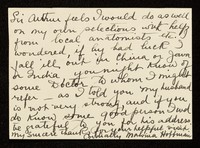 Sir Arthur feels I would do as well
on my own selections with help
from local anatomists etc. I
wondered if by bad luck I
fall ill out in China or Japan
or India you might know of
some Doctor to whom I might
refer — as I told you my husband
is not very strong and if you
do know some good person I'd
be grateful to you for his address
My sincere thanks for your helpful kind
Cordially Malvina Hoffman